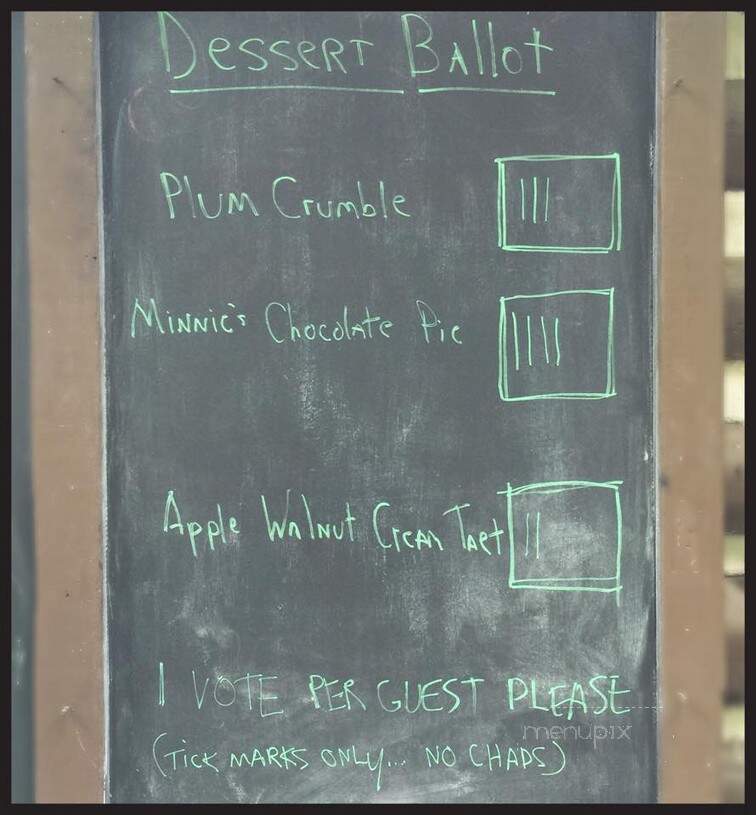 Dessert Ballot
Plum Crumble |||
Minnie's Chocolate Pie ||||
Apple Walnut Cream Tart ||
1 VOTE PER GUEST PLEASE
menupix
(TICK MARKS ONLY... NO CHADS)